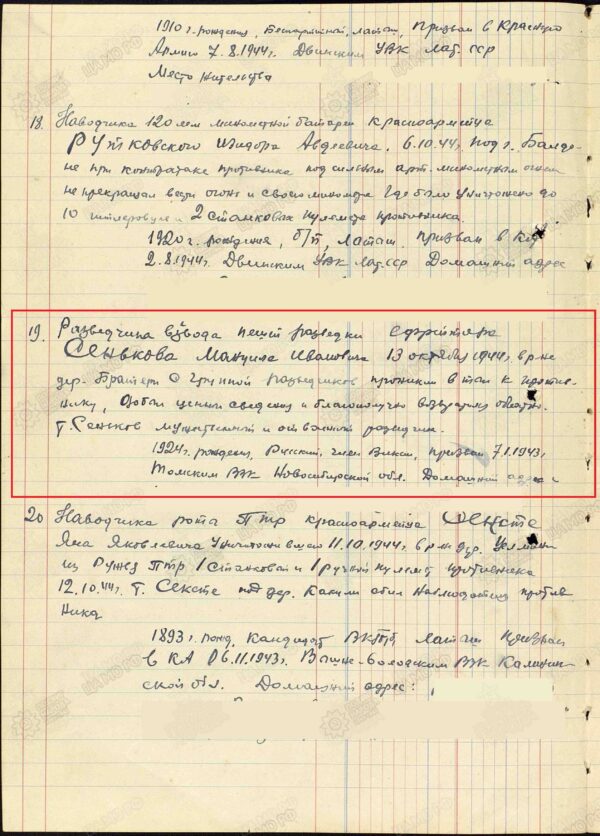 1910 г. рождения, беспартийный, латыш, призван в Красную
Армию 7.8.1944 г. Двинским УВК Лат. ССР
Место жительства
18. Наводчика 120 м/м минометной батареи красноармейца
Рутковского Изидора Авдеевича, 6.10.44 г. под г. Балдо-
не при контратаке противника под сильным арт. минометным огнем
не прекращал вести огонь из своего миномета где было уничтожено до
10 гитлеровцев и 2 станковых пулемета противника.
1920 г. рождения, б/п, латыш, призван в КА
2.8.1944 г. Двинским УВК Лат. ССР Домашний адрес
19. Разведчика взвода пешей разведки ефрейтора
Сенькова Ивановича 13 октября 1944 г. в р-не
дер. с группой разведчиков проникли в тыл к против-
нику, добыл ценные сведения и благополучно возвратились обратно.
т. Сеньков мужественный и отважный разведчик.
1924 г. рождения, Русский, член ВЛКСМ, призван 7.1.1943 г.
Томским РВК Новосибирской обл. Домашний адрес:
20 Наводчика рота ПТР красноармейца Сексте
Яна Яковлевича уничтожившего 11.10.1944 г. в р-не дер.
из ружья ПТР 1 станковый и 1 ручной пулемет противника
12.10.44 г. т. Сексте под дер. сбил наблюдателя против
ника
1893 г. рожд. кандидат ВКП/б/ латыш призван
в КА 06.11.1943 г. Вышне-Волоцким РВК Калинин-
ской обл. Домашний адрес:
ЦАМО РФ